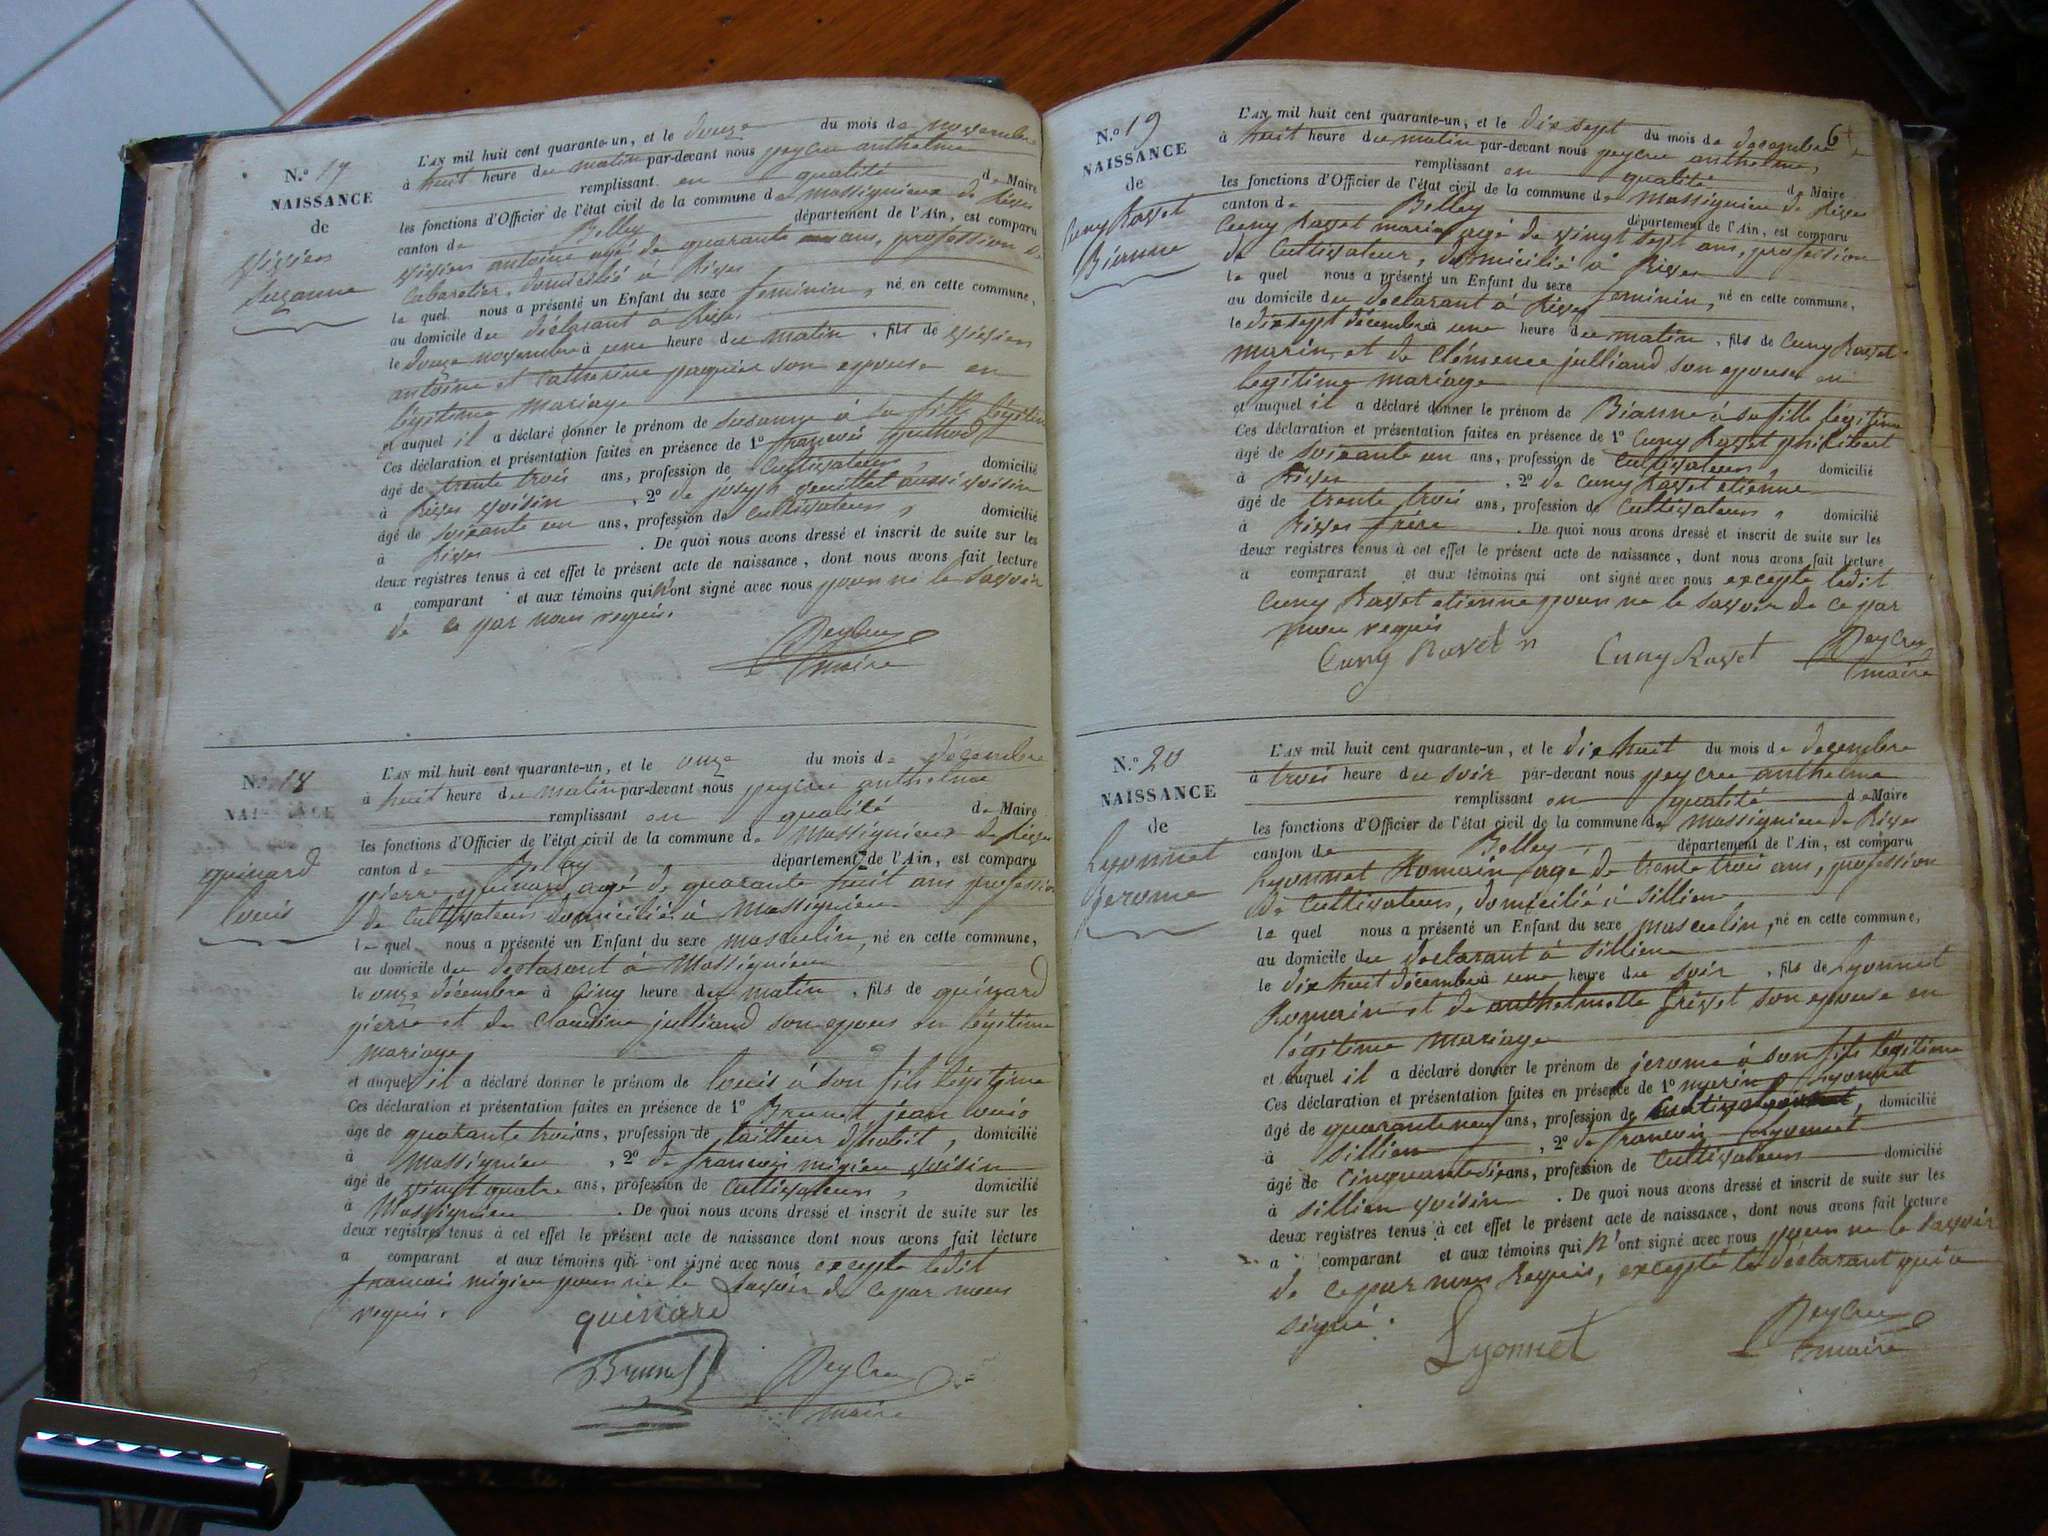 N.o 17
NAISSANCE
de
Vivien
Suzanne
L'AN mil huit cent quarante-un, et le douze du mois de novembre
à huit heure du matin par-devant nous peycru anthelme
remplissant en qualité de Maire
les fonctions d'Officier de l'état civil de la commune de Massignieu de Rives
canton de Belley département de l'Ain, est comparu
Vivien antoine agé de quarante ans, profession de
Cabaretier, domicilié à Rives
le quel nous a présenté un Enfant du sexe feminin, né en cette commune,
au domicile du déclarant à Rives
le douze novembre à une heure du matin, fils de Vivien
antoine et Catherine son epouse en
légitime mariage
et auquel il a déclaré donner le prénom de Susanne à sa fille légitime
Ces déclaration et présentation faites en présence de 1o francois
âgé de trente trois ans, profession de Cultivateur, domicilié
à Rives voisin, 2o de joseph aussi voisin
âgé de soixante un ans, profession de Cultivateur, domicilié
à Rives. De quoi nous avons dressé et inscrit de suite sur les
deux registres tenus à cet effet le présent acte de naissance, dont nous avons fait lecture
a comparant et aux témoins qui n'ont signé avec nous pour ne le savoir
de ce par nous requis.
Peycru
maire
N.o 18
NAISSANCE
guinard
louis
L'AN mil huit cent quarante-un, et le onze du mois de décembre
à huit heure du matin par-devant nous peycru anthelme
remplissant en qualité de Maire
les fonctions d'Officier de l'état civil de la commune de Massignieu de Rives
canton de Belley département de l'Ain, est comparu
pierre guinard agé de quarante huit ans profession
de Cultivateur domicilié à Massignieu
le quel nous a présenté un Enfant du sexe masculin, né en cette commune,
au domicile du declarant à Massignieu
le onze décembre à cinq heure du matin, fils de guinard
pierre et de Claudine julliand son epouse en légitime
mariage
et auquel il a déclaré donner le prénom de louis à son fils légitime
Ces déclaration et présentation faites en présence de 1o Brunet jean louis
âgé de quarante trois ans, profession de tailleur d'habit, domicilié
à Massignieu, 2o de francois migieu voisin
âgé de vingt quatre ans, profession de Cultivateur, domicilié
à Massignieu. De quoi nous avons dressé et inscrit de suite sur les
deux registres tenus à cet effet le présent acte de naissance dont nous avons fait lecture
a comparant et aux témoins qui ont signé avec nous excepté ledit
francois migieu pour ne le savoir de ce par nous
requis.
guinard
Brunet
Peycru
maire
6
N.o 19
NAISSANCE
de
Cuny Ravet
Bianne
L'AN mil huit cent quarante-un, et le dix sept du mois de decembre
à huit heure du matin par-devant nous peycru anthelme,
remplissant en qualité de Maire
les fonctions d'Officier de l'état civil de la commune de Massignieu de Rives
canton de Belley département de l'Ain, est comparu
Cuny Ravet marin agé de vingt sept ans, profession
de Cultivateur, domicilié à Rives
le quel nous a présenté un Enfant du sexe feminin, né en cette commune,
au domicile du declarant à Rives
le dix sept décembre à une heure du matin, fils de Cuny Ravet
marin, et de Clémence julliand son epouse en
legitime mariage
et auquel il a déclaré donner le prénom de Bianne à sa fille légitime
Ces déclaration et présentation faites en présence de 1o Cuny Ravet philibert
âgé de soixante un ans, profession de Cultivateur, domicilié
à Rives, 2o de Cuny Ravet etienne
âgé de trente trois ans, profession de Cultivateur, domicilié
à Rives frère. De quoi nous avons dressé et inscrit de suite sur les
deux registres tenus à cet effet le présent acte de naissance, dont nous avons fait lecture
a comparant et aux témoins qui ont signé avec nous excepté ledit
Cuny Ravet etienne pour ne le savoir de ce par
nous requis
Cuny Ravet n Cuny Ravet Peycru
maire
N.o 20
NAISSANCE
de
Lyonnet
Jerome
L'AN mil huit cent quarante-un, et le dix huit du mois de decembre
à trois heure du soir par-devant nous peycru anthelme
remplissant en qualité de Maire
les fonctions d'Officier de l'état civil de la commune de Massignieu de Rives
canton de Belley, département de l'Ain, est comparu
Lyonnet Romain agé de trente trois ans, profession
de Cultivateur, domicilié à Sillien
le quel nous a présenté un Enfant du sexe masculin, né en cette commune,
au domicile du declarant à Sillien
le dix huit décembre à une heure du soir, fils de Lyonnet
Romain et de anthelmette son epouse en
légitime mariage
et auquel il a déclaré donner le prénom de jerome à son fils légitime
Ces déclaration et présentation faites en présence de 1o marin Lyonnet
âgé de quarante neuf ans, profession de domicilié
à Sillien, 2o de francois Lyonnet
âgé de Cinquante six ans, profession de Cultivateur domicilié
à Sillien voisin. De quoi nous avons dressé et inscrit de suite sur les
deux registres tenus à cet effet le présent acte de naissance, dont nous avons fait lecture
a comparant et aux témoins qui n'ont signé avec nous pour ne le savoir
de ce par nous Requis, excepté le déclarant qui a
signé.
Lyonnet
Peycru
maire